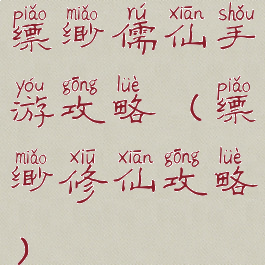 piǎo miǎo rú xiān shǒu
缥缈儒仙手
yóu gōng lüè piǎo
游攻略（缥
miǎo xiū xiān gōng lüè
缈修仙攻略
）